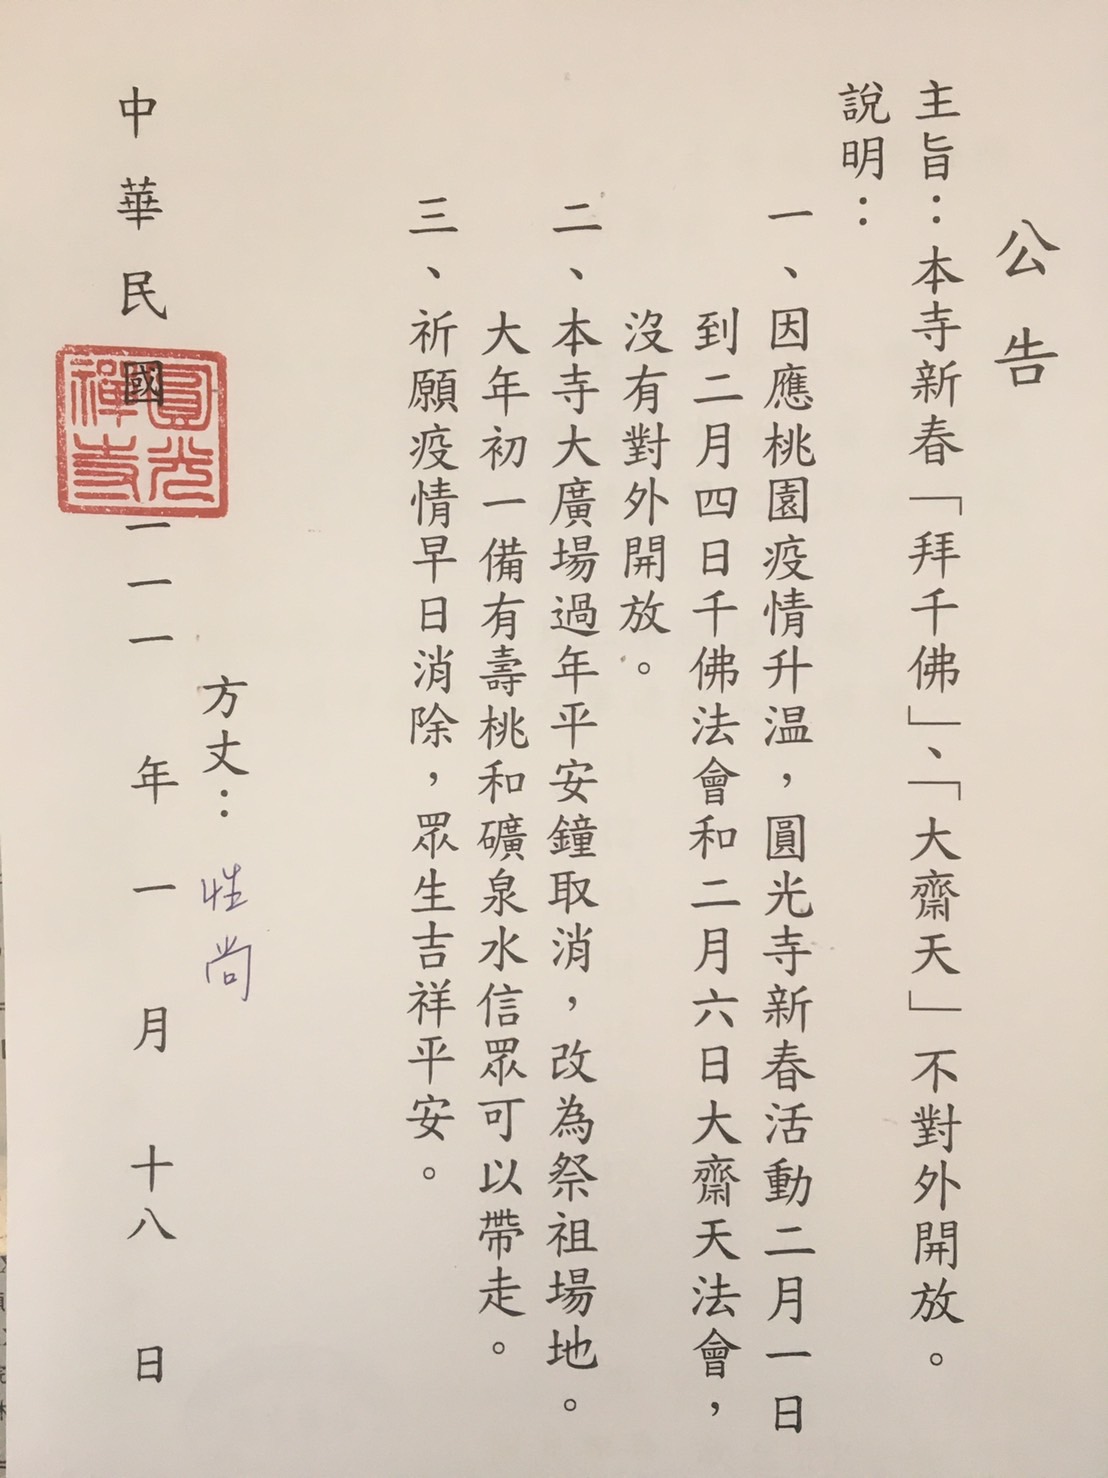 公告
主旨：本寺新春「拜千佛」、「大齋天」不對外開放。
說明：
一、因應桃園疫情升温，圓光寺新春活動二月一日
到二月四日千佛法會和二月六日大齋天法會，
沒有對外開放。
二、本寺大廣場過年平安鐘取消，改為祭祖場地。
大年初一備有壽桃和礦泉水信眾可以帶走。
三、祈願疫情早日消除，眾生吉祥平安。
方丈：性尚
中華民國一一一年一月十八日
圓光禪寺